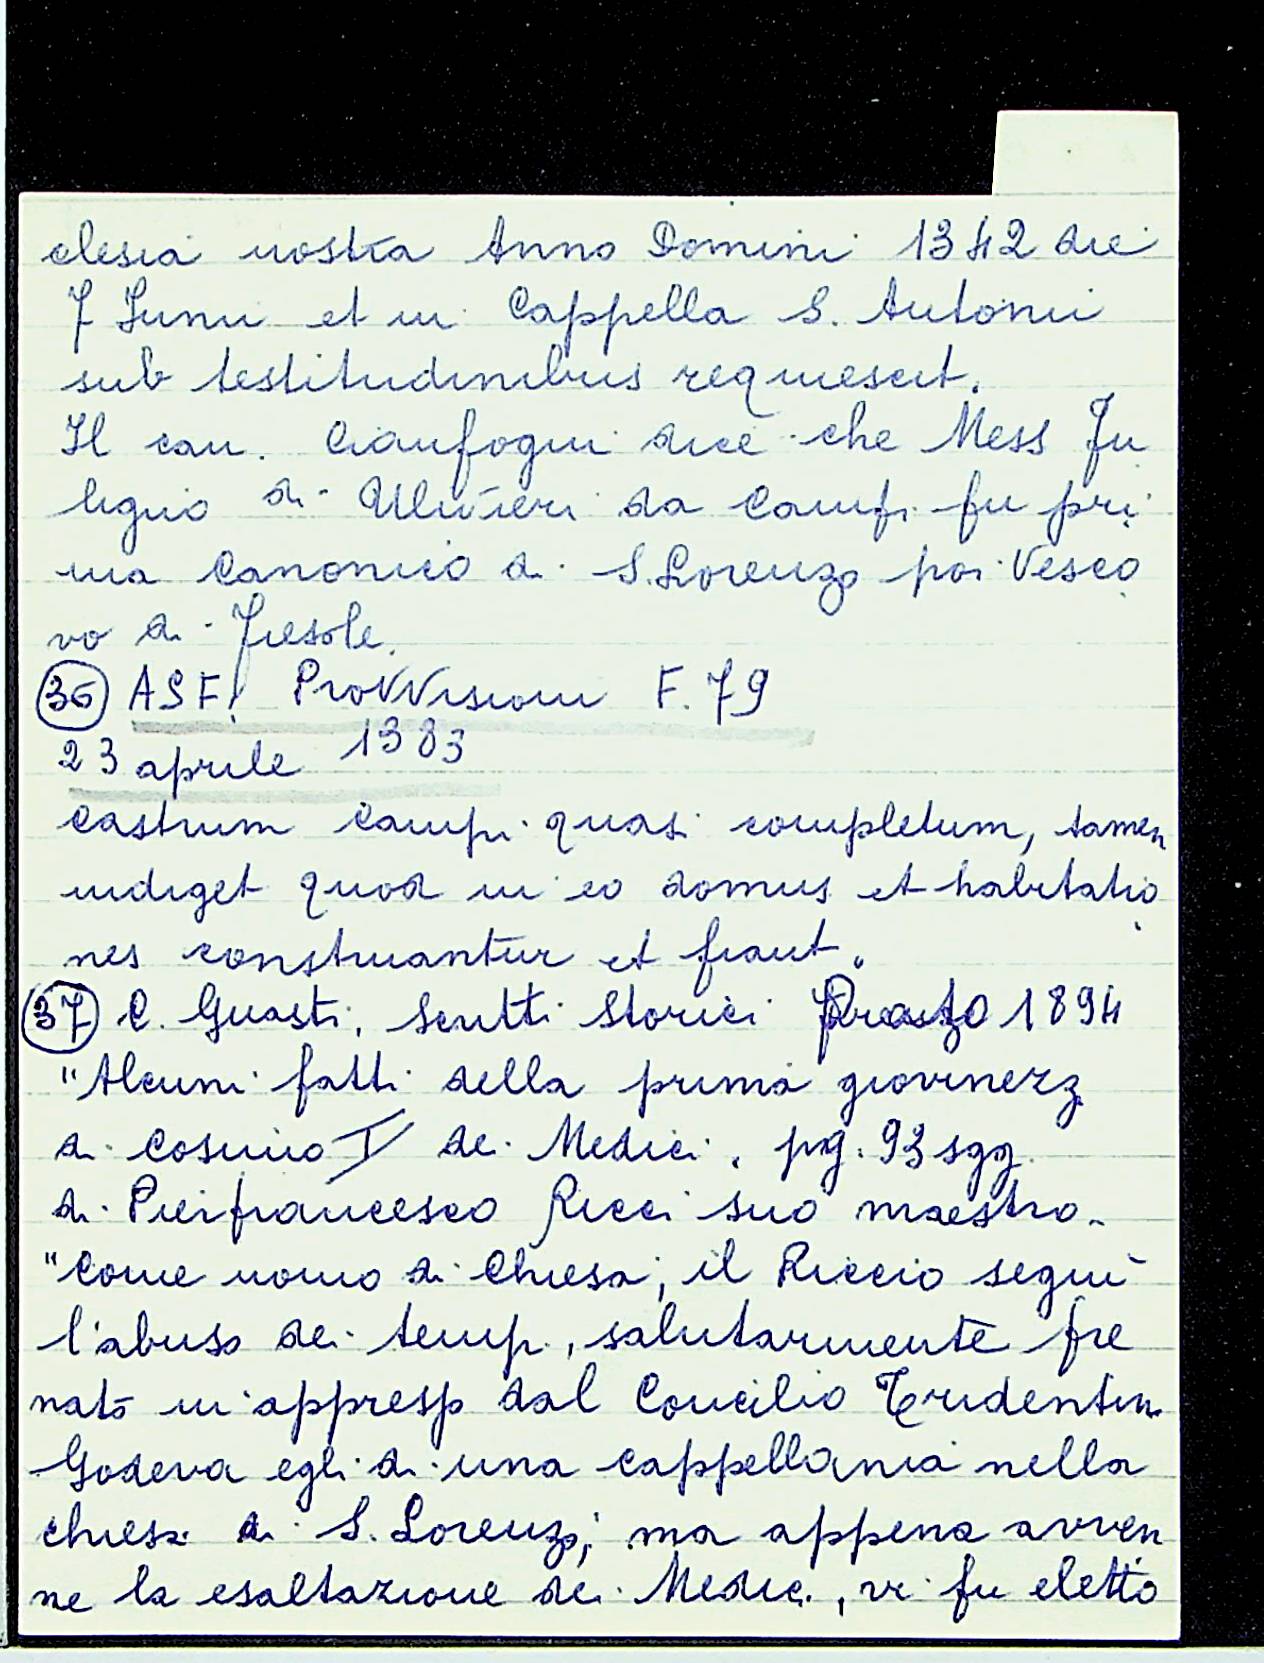 clesia nostra Anno Domini 1342 die
7 Junii et in Cappella S. Antonii
sub testitudinibus requiescit.
Il can. Cianfogni dice che Mess Fu
ligno di Ulivieri da Campi fu pri
ma Canonico di S. Lorenzo poi Vesco
vo di Fiesole.
36 ASF. Provvisioni F. 79
23 aprile 1383
castrum Campi quasi completum, tamen
indiget quod in eo domus et habitatio
nes construantur et fiant.
37 C. Guasti, Scritti Storici Prato 1894
"Alcuni fatti della prima giovinezz
di Cosimo I de Medici. pg. 93 sgg.
di Pierfrancesco Ricci suo maestro.
"Come uomo di Chiesa, il Riccio seguì
l'abuso dei tempi, salutarmente fre
nato in appresso dal Concilio Tridentino
Godeva egli di una cappellania nella
chiesa di S. Lorenzo; ma appena avven
ne la esaltazione dei Medici, vi fu eletto